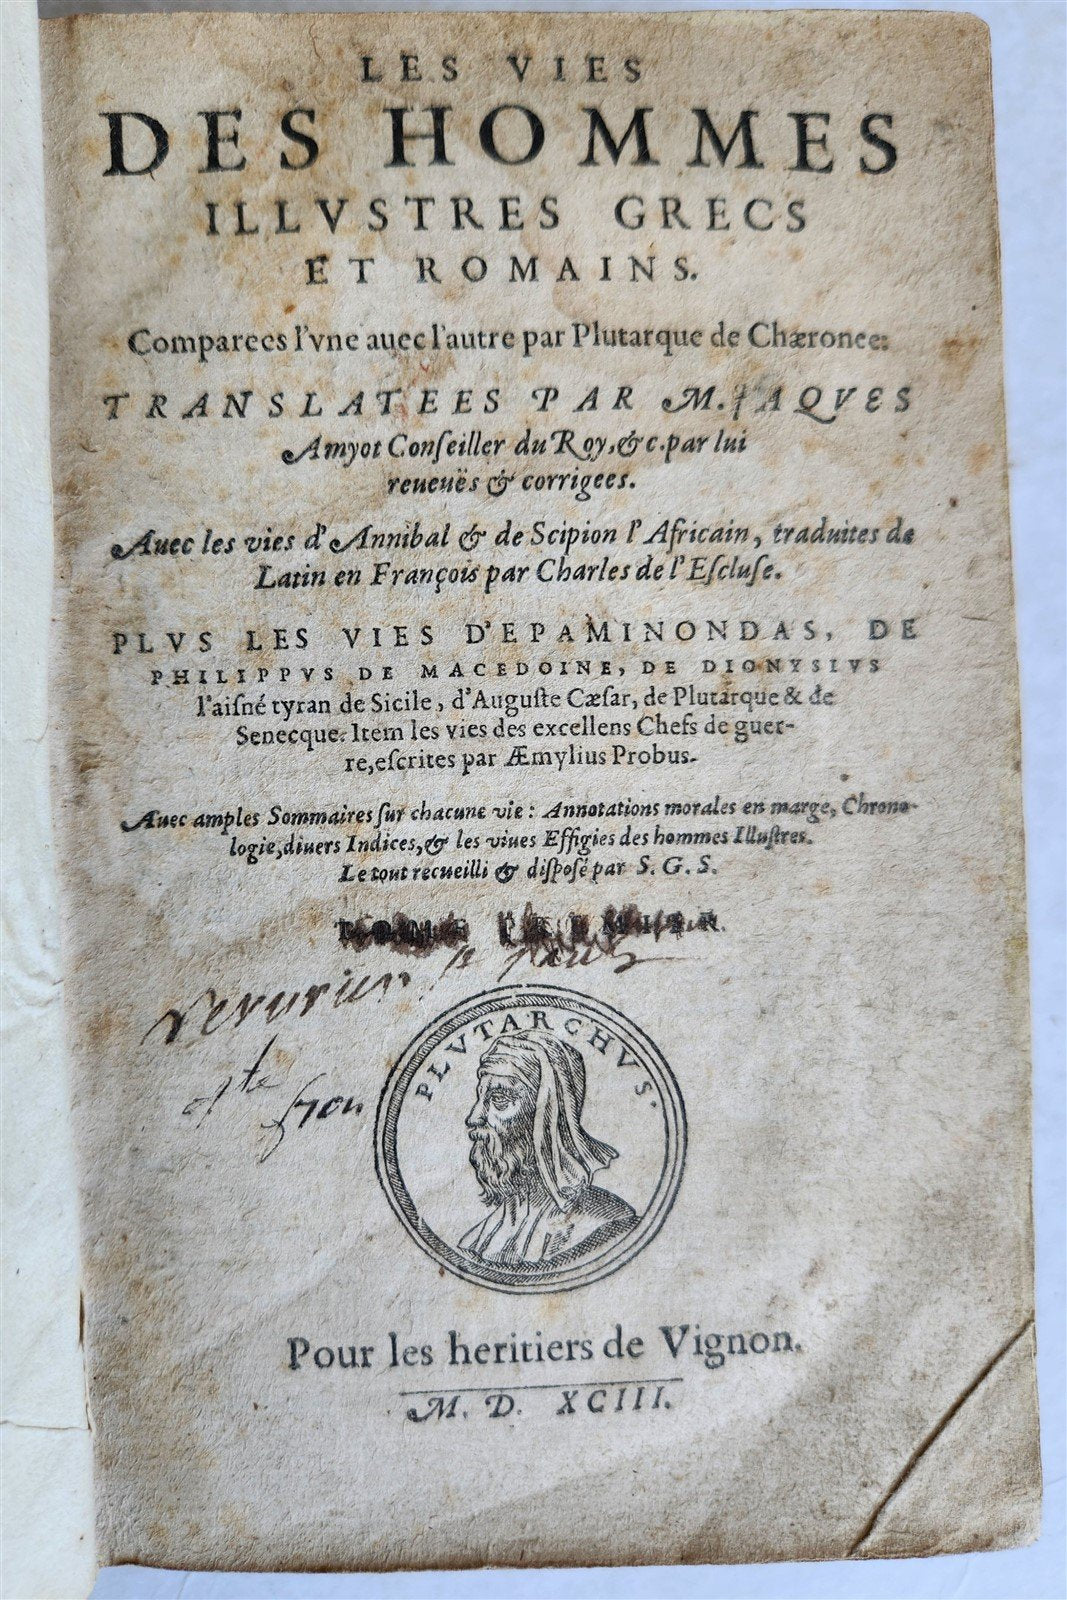 LES VIES
DES HOMMES
ILLVSTRES GRECS
ET ROMAINS.
Comparees l'vne auec l'autre par Plutarque de Chæronee:
TRANSLATEES PAR M. IAQVES
Amyot Conſeiller du Roy, &c. par lui
reueuës & corrigees.
Auec les vies d'Annibal & de Scipion l'Africain, traduites de
Latin en François par Charles de l'Eſcluſe.
PLVS LES VIES D'EPAMINONDAS, DE
PHILIPPVS DE MACEDOINE, DE DIONYSIVS
l'aiſné tyran de Sicile, d'Auguſte Cæſar, de Plutarque & de
Senecque. Item les vies des excellens Chefs de guer-
re, eſcrites par Æmylius Probus.
Auec amples Sommaires ſur chacune vie: Annotations morales en marge, Chrono-
logie, diuers Indices, & les viues Effigies des hommes Illuſtres.
Le tout recueilli & diſpoſé par S. G. S.
TOME PREMIER.
PLVTARCHVS.
Pour les heritiers de Vignon.
M. D. XCIII.